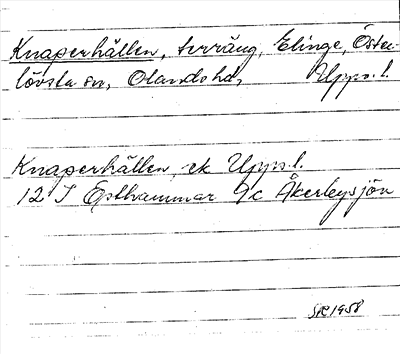 Knaperhällen, terräng, Elinge, Öster-
lövsta sn, Olands hd, Upps. l.
Knaperhällen, ek Upps l.
12 I Östhammar c Åkerbysjön
1958